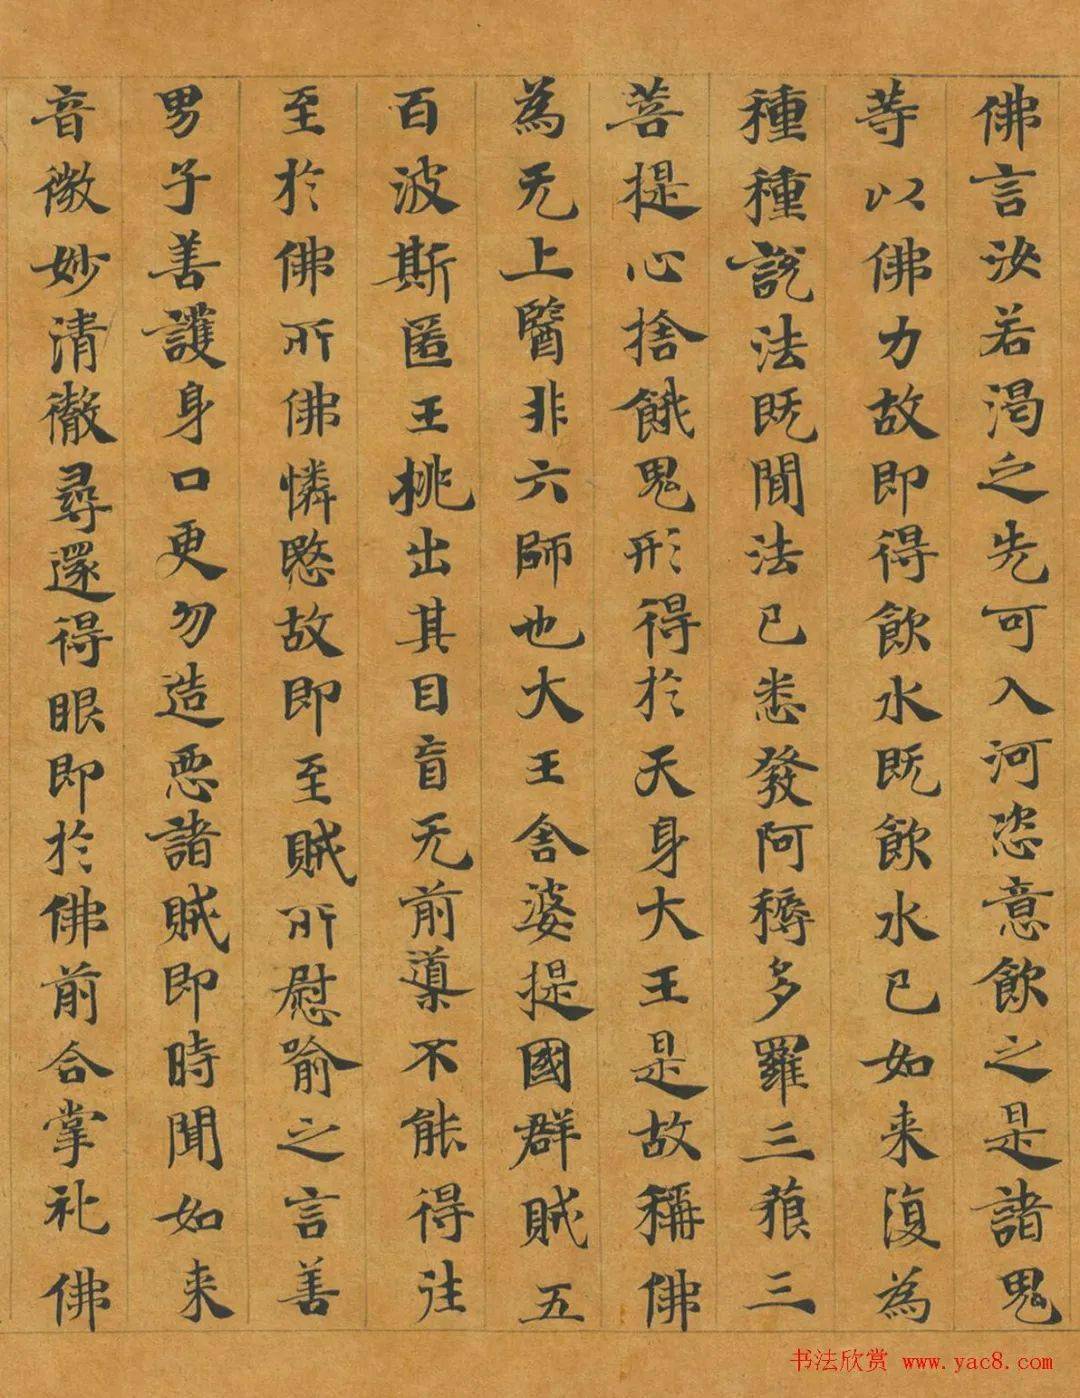 佛言汝若渇之先可入河恣意飲之是諸鬼
等以佛力故即得飲水既飲水已如来復為
種種說法既聞法已悉發阿耨多羅三藐三
菩提心捨餓鬼形得於天身大王是故稱佛
為无上醫非六師也大王舍婆提國群賊五
百波斯匿王挑出其目盲无前導不能得往
至於佛所佛憐愍故即至賊所慰喻之言善
男子善護身口更勿造惡諸賊即時聞如来
音微妙清徹尋還得眼即於佛前合掌礼佛
书法欣赏 www.yac8.com